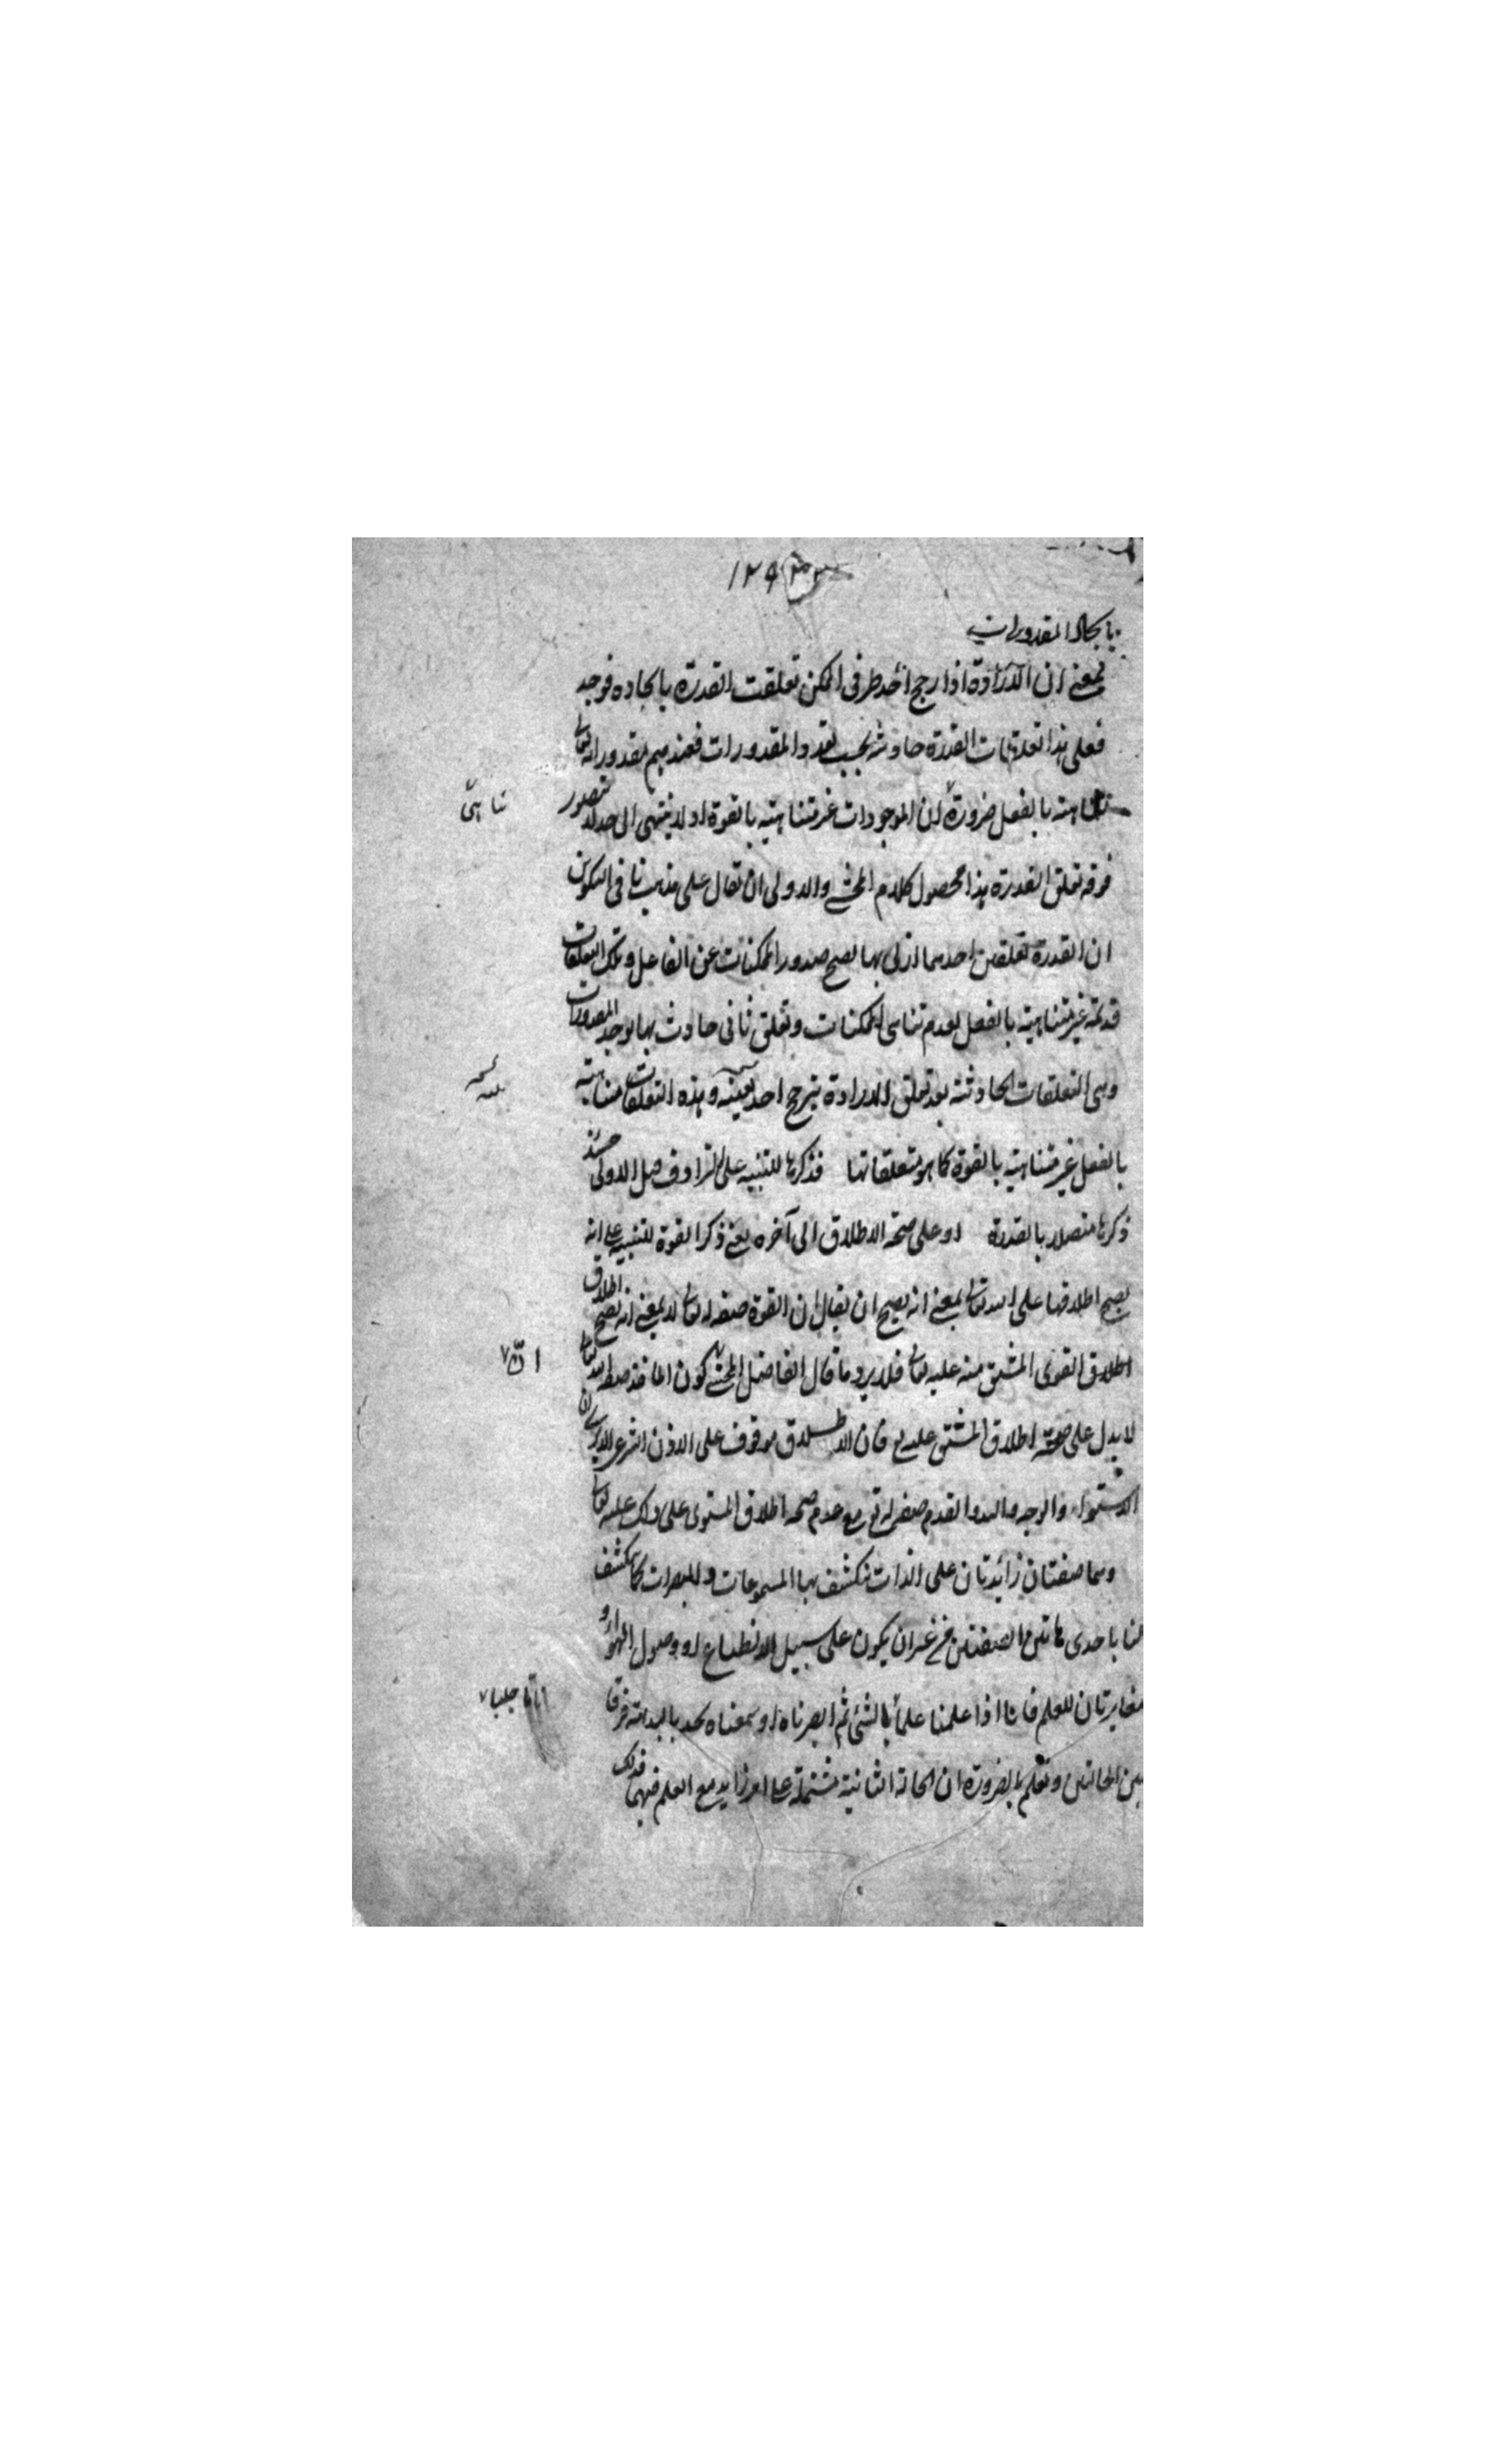 ١٢٩
بايجاد المقدورات
بمعنى ان الارادة اذا رجح احد طرفى الممكن تعلقت القدرة بايجاده فوجد
فعلى هذا تعلقات القدرة حادثه بحسب تعدد المقدورات فعندهم مقدوراته تعالى
متناهية بالفعل ضرورة ان الموجودات غير متناهيه بالقوة اذ لا ينتهى الى حد لا يتصور
تناهى
فوقه تعلق القدرة هذا محصول كلام المحشى والاولى ان يقال على مذهب نافى التكوين
ان القدرة تعلقين احدهما ازلى بها يصح صدور الممكنات عن الفاعل وتلك التعلقات
قديمة غير متناهية بالفعل لعدم تناهى الممكنات وتعلق ثانى حادث بها يوجد المقدورات
وهى التعلقات الحادثة بعد تعلق الارادة بترجح احد بعينه وهذه التعلقات متناهية
بالفعل غير متناهيه بالقوة كما هو متعلقاتها فذكرها للتنبيه على الترادف قيل الاولى حينئذ
ذكرها متصلا بالقدرة او على صحة الاطلاق الى آخره يعنى ذكر القوة لتنبيه على انه
يصح اطلاقها على الله تعالى بمعنى انه يصح ان يقال ان القوة صفة له تعالى لا بمعنى انه يصح اطلاق
اطلاق القوى المشتق منه عليه تعالى فلا يرد ما قال الفاضل المحشى كون الماخذ صفة لله تعالى
ان
لا يدل على صحة اطلاق المشتق عليه فان الاطلاق موقوف على الاذن الشرعى الا يرى ان
الاستواء والوجه واليد والقدم صفة له تع مع عدم صحة اطلاق المستوى على ذلك عليه تعالى
وهما صفتان زائدتان على الذات تنكشف بها المسموعات والمبصرات كما تنكشف
لنا باحدى هاتين الصفتين من غير ان يكون على سبيل الانطباع او وصول الهواء و
مغايرتان للعلم فانا اذا علمنا علما بالشئ ثم ابصرناه او سمعناه نجد بالبداهة فرقا
تاما جليا
بين الحالتين ونعلم بالضرورة ان الحالة الثانية مشتملة على امر زايد مع العلم فيهما فذلك